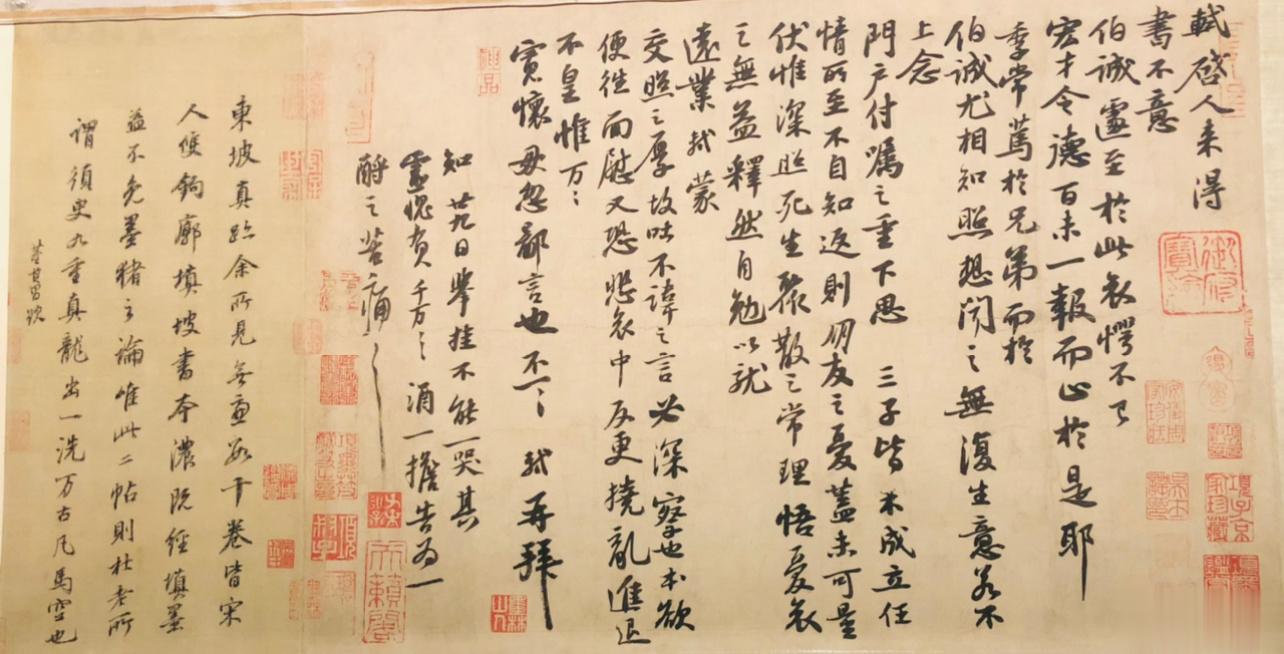 軾啓人来得
書不意
伯誠遽至於此哀愕不已
宏才令德百未一報而止於是耶
季常篤於兄弟而於
伯誠尤相知照想聞之無復生意若不
上念
門户付嘱之重下思三子皆未成立任
情所至不自知返則朋友之憂蓋未可量
伏惟深照死生聚散之常理悟憂哀
之無益釋然自勉以就
遠業軾蒙
交照之厚故吐不諱之言必深察也本欲
便往面慰又恐悲哀中反更撓亂進退
不皇惟万〻
寬懷毋忽鄙言也不一〻軾再拜
知廿九日舉挂不能一哭其
靈愧負千万〻酒一擔告為一
酹之苦痛〻
東坡真跡余所見無慮數十卷皆宋
人雙鉤廓填坡書本濃既經填墨
益不免墨猪之論唯此二帖則杜老所
謂須臾九重真龍出一洗万古凡馬空也
董其昌跋
御府寶繪
項子京家珍藏
天籟閣